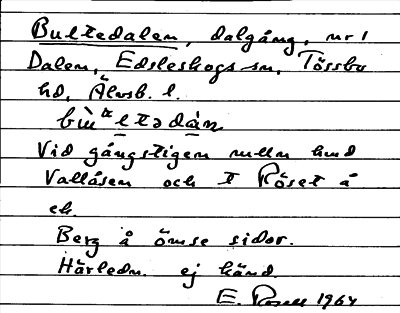 Bultedalen, dalgång, nr 1
Dalen, Edsleskogs sn, Tössbo
hd, Älvsb. l.
Vid gångstigen mellan hmd
Vallåsen och t Röset å
ek.
Berg å ömse sidor.
Härledn. ej känd.
E. 1964